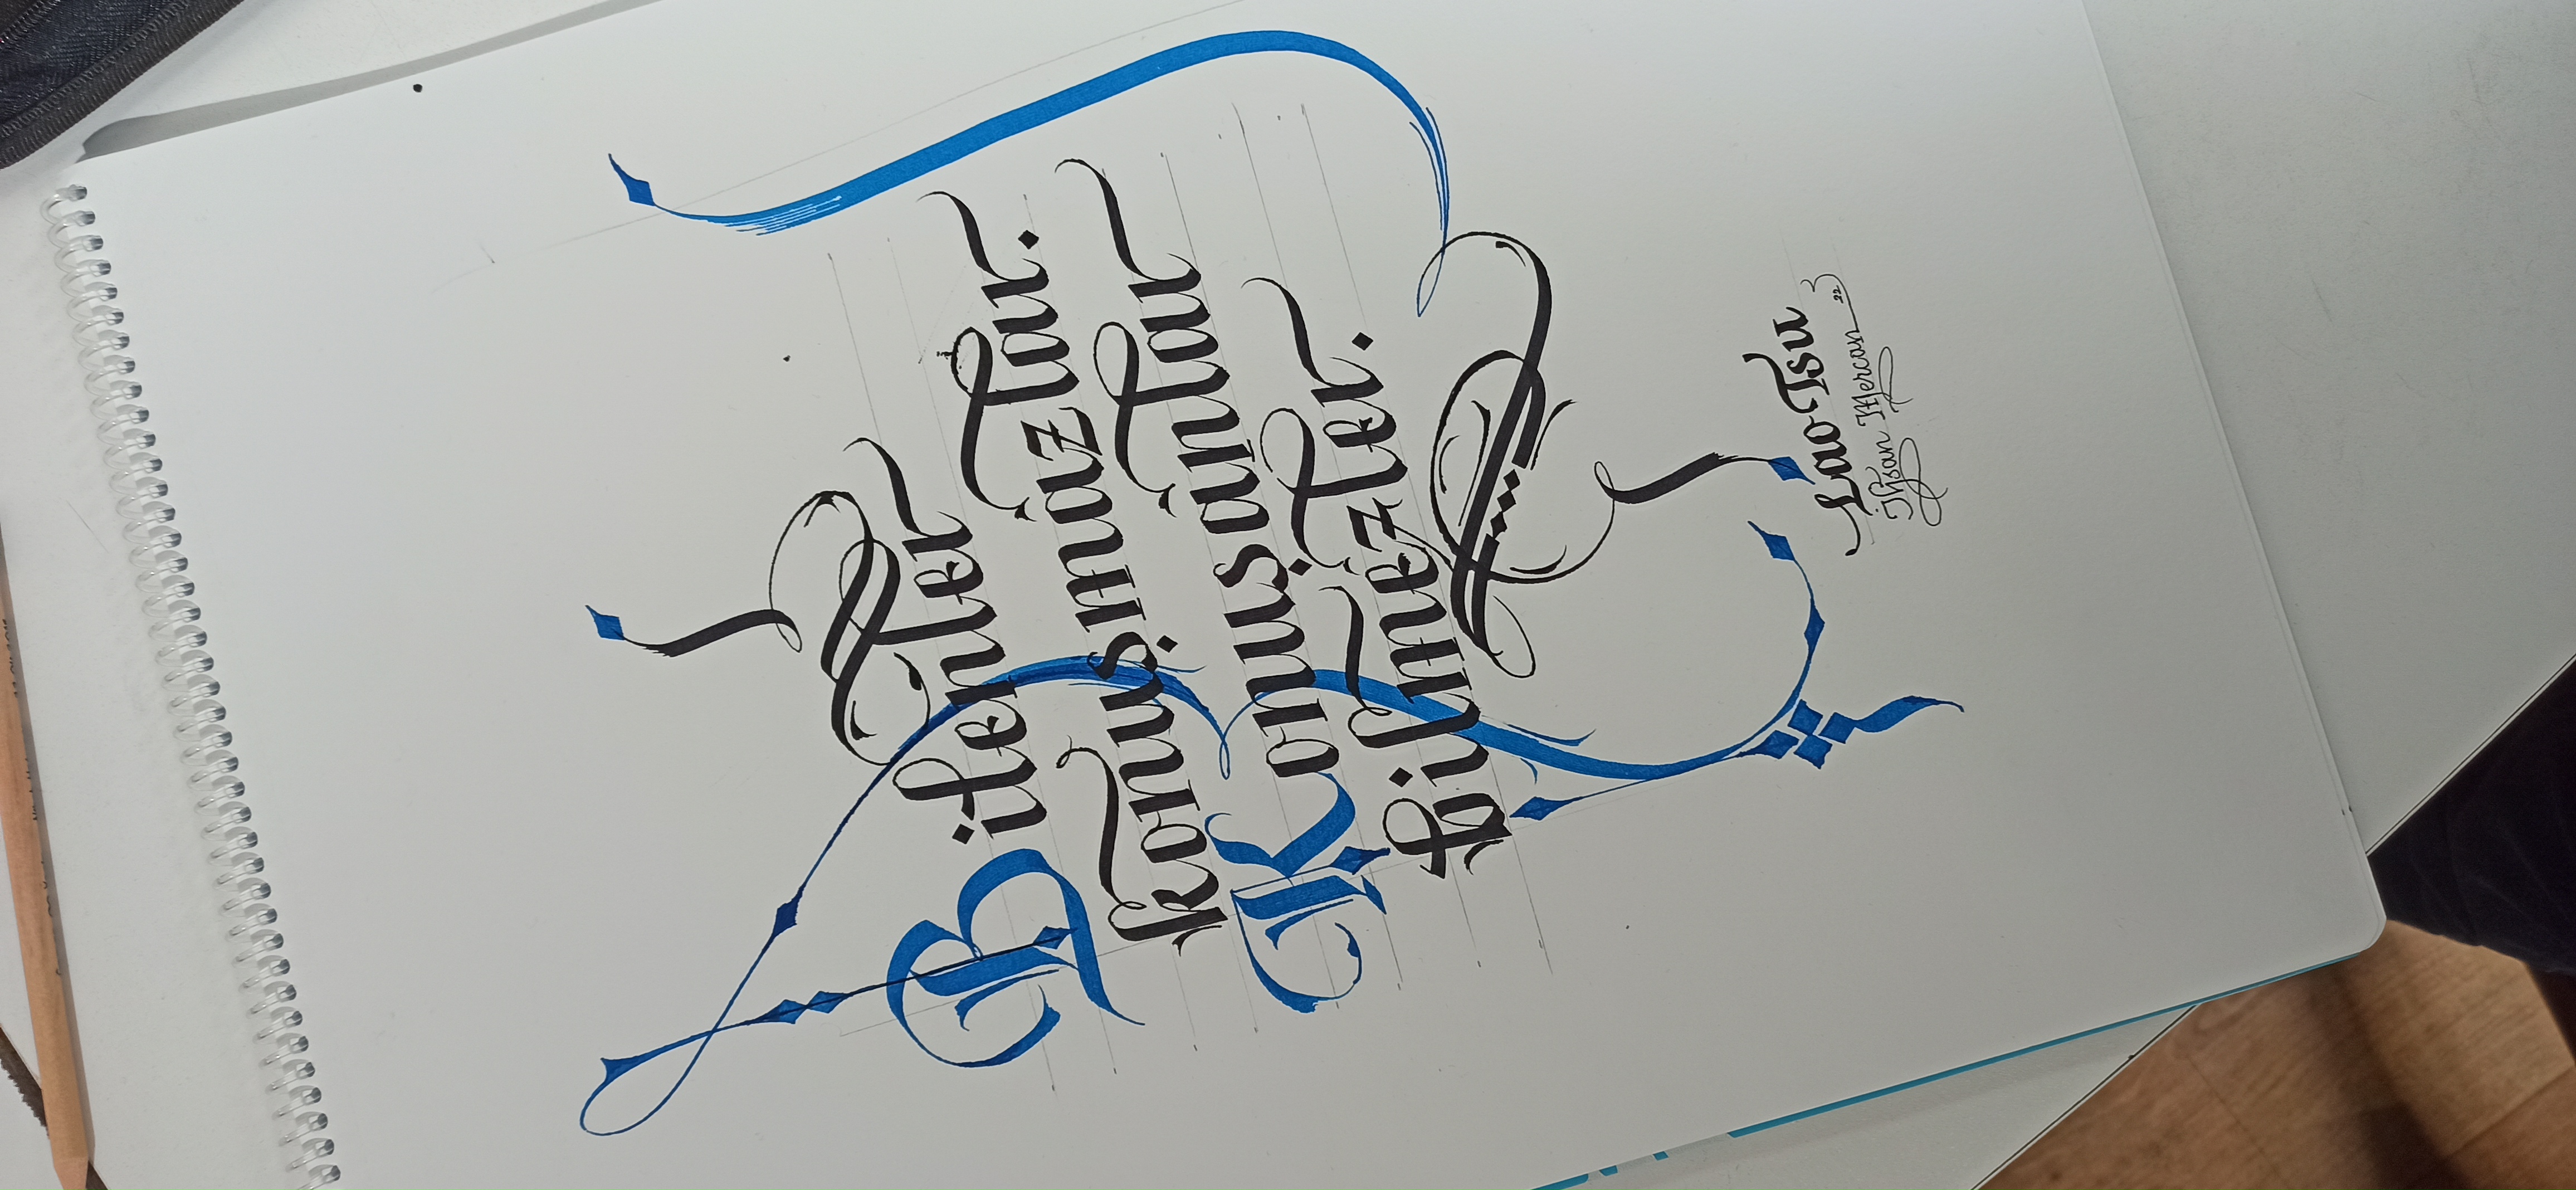 Bilenler
konuşmazlar.
Konuşanlar
bilmezler.
Lao Tsu
İhsan Mercan 22